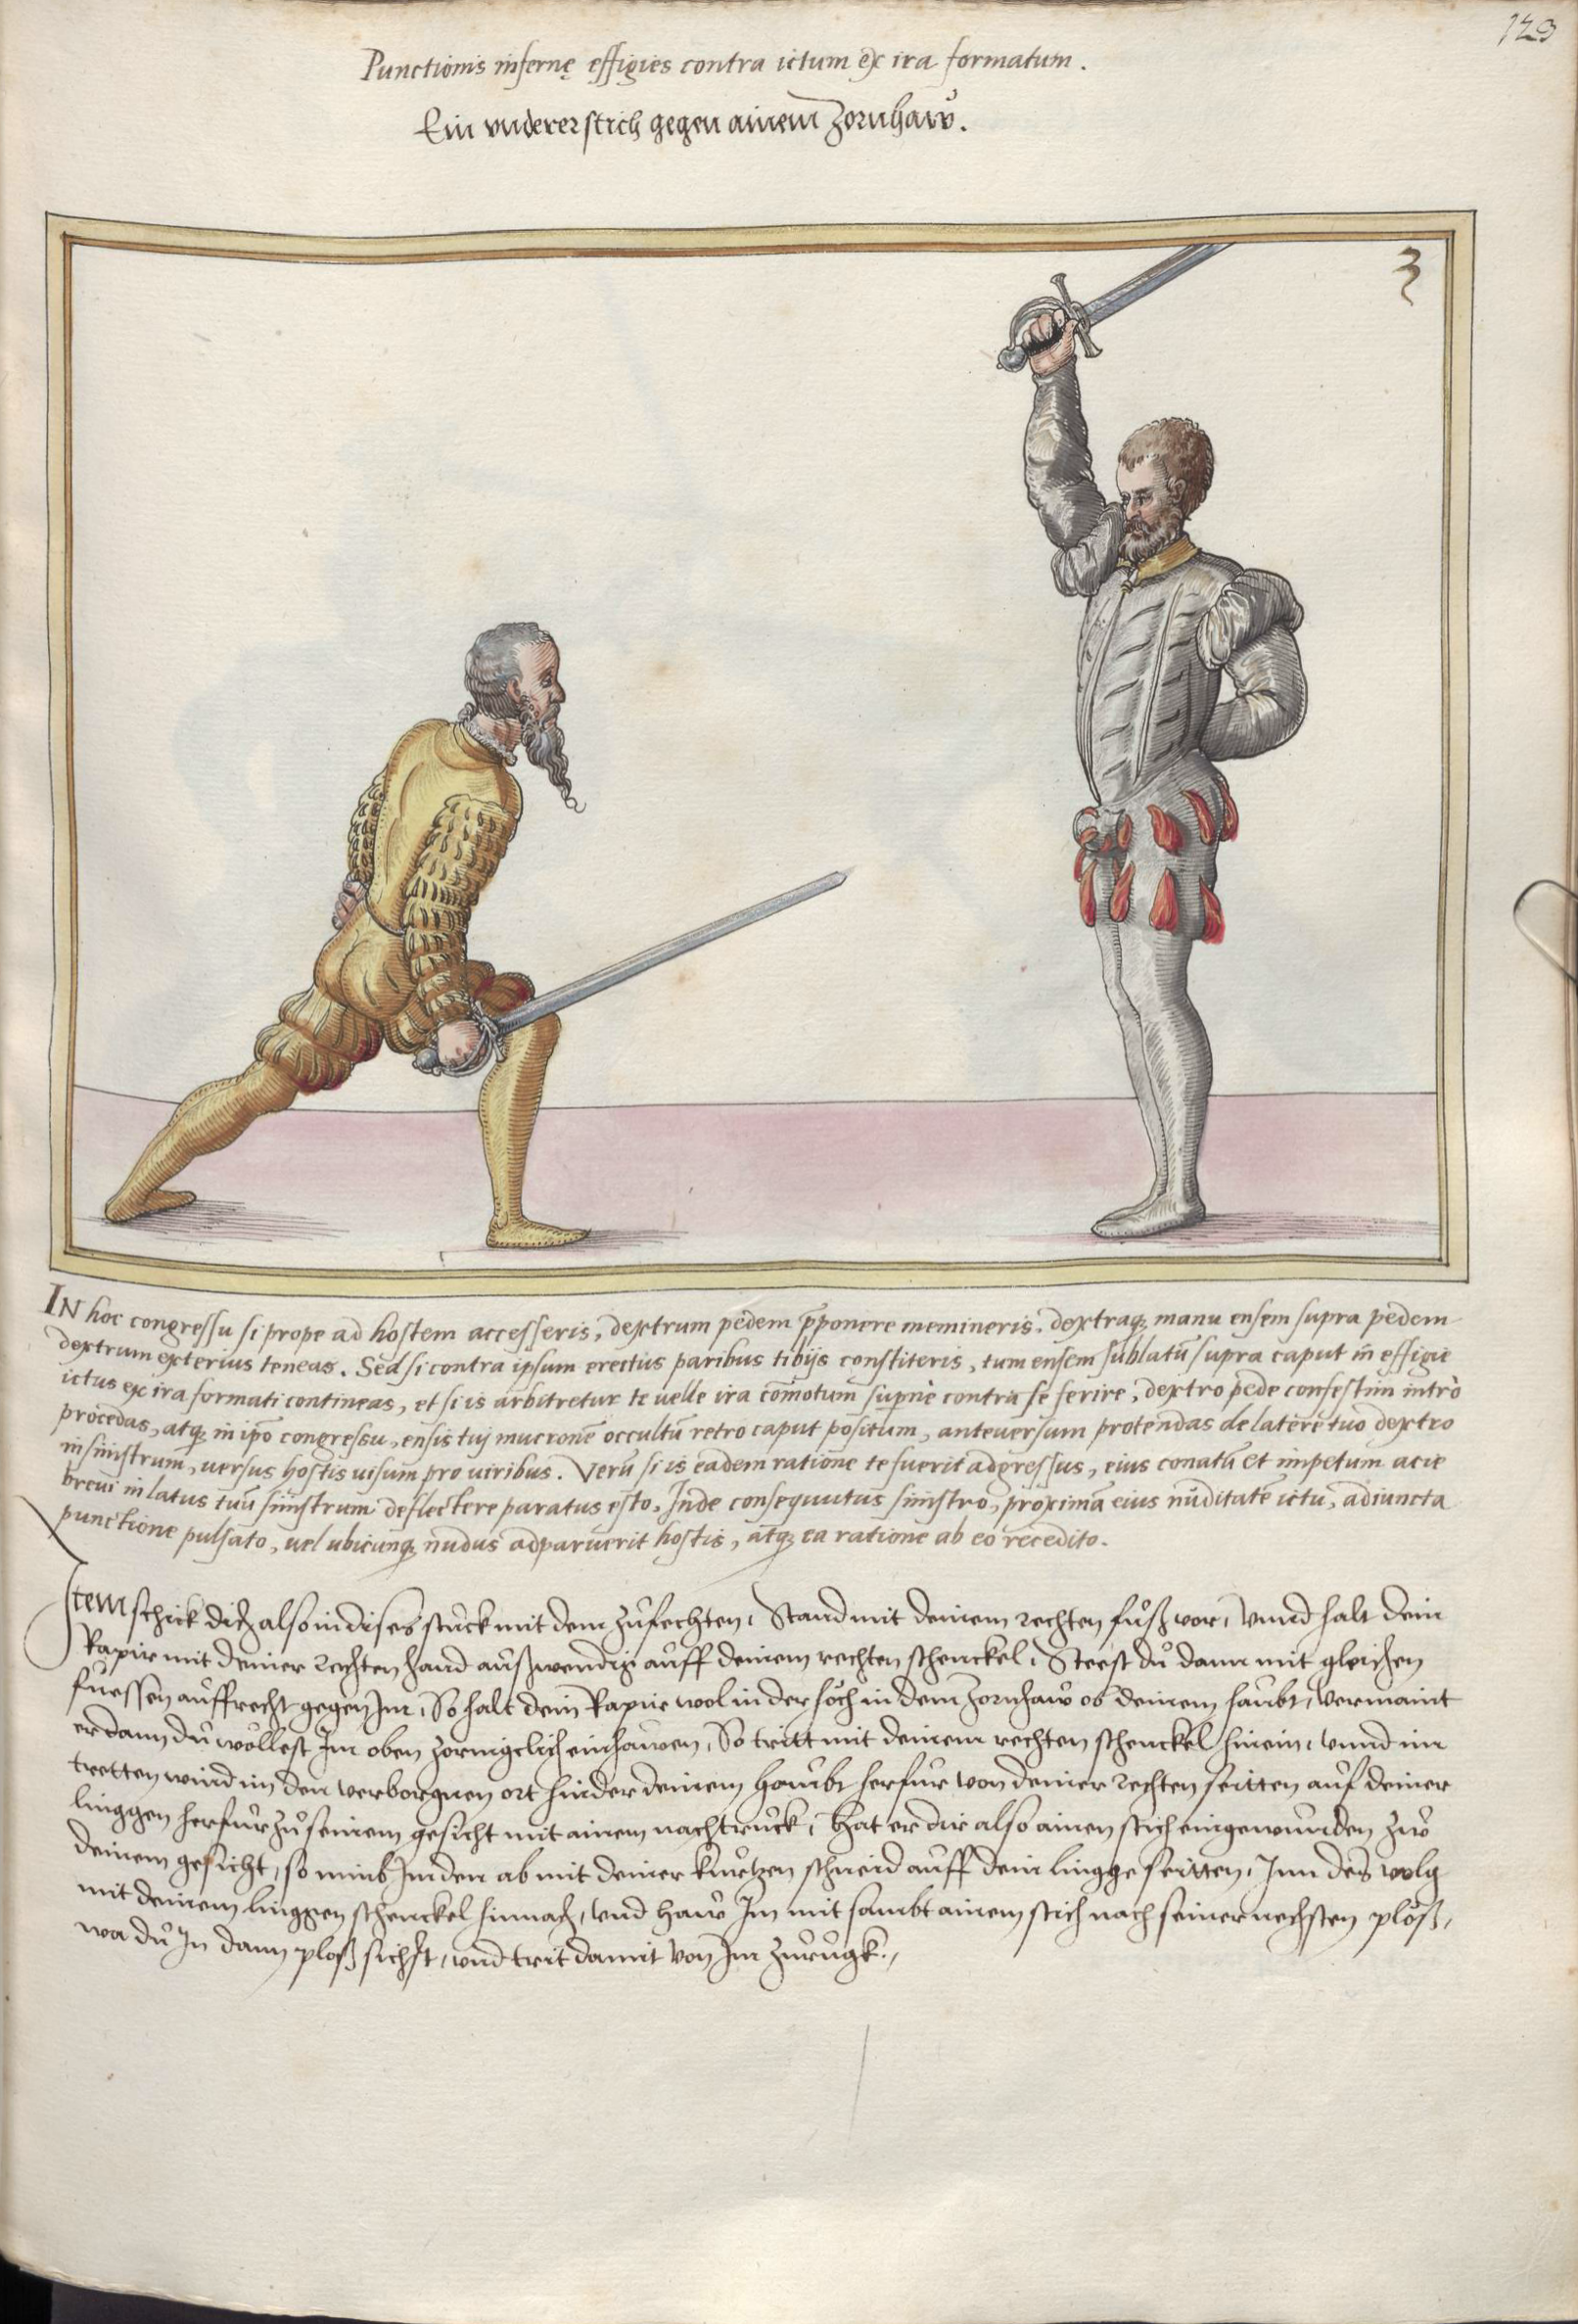 123
Punctionis infernę effigies contra ictum ex ira formatum.
Ein vnderer stich gegen ainem Zornhaw.
3
IN hoc congressu si prope ad hostem accesseris, dextrum pedem p̄ponere memineris, dextraq; manu ensem supra pedem
dextrum exterius teneas. Sed si contra ipsum erectus paribus tibijs constiteris, tum ensem sublatū supra caput in effigie
ictus ex ira formati contineas, et si is arbitretur te uelle ira com̄otum supernè contra se ferire, dextro pede confestim intrò
procedas, atq; in ipō congressu, ensis tuj mucronē occultū retro caput positum, anteuersum protendas de latere tuo dextro
in sinistrum, uersus hostis uisum pro uiribus. Verū si is eadem ratione te fuerit adgressus, eius conatū et impetum acie
breui in latus tuū sinistrum deflectere paratus esto. Inde consequutus sinistro, proximā eius nuditatē ictu, adiuncta
punctione pulsato, uel ubicunq; nudus adparuerit hostis, atq; ea ratione ab eo recedito.
Item schick dich also in dises stuck mit dem zůfechten, Stand mit deinem rechten fůß vor, vnnd halt dein
Rapier mit deiner rechten hand außwendig auff deinem rechten schenckel, Steest du dann mit gleichen
fuessen auffrecht gegen Im, So halt dein Rapier wol in der höch in dem Zornhaw ob deinem haubt, Vermaint
er dann du wöllest Im oben zornigclich einhawen, So tritt mit deinem rechten schenckel hinein, vnnd im
tretten wind im den verborgnen ort hinder deinem haubt herfur von deiner rechten seitten auf deiner
linggen herfur zů seinem gesicht mit ainem nachtruck, Hat er dir also ainen stich eingewunden zů
deinem gesicht, so nimb Im den ab mit deiner kurtzen schneid auff dein lingge seitten, Inn des volg
mit deinem linggen schenckel hinnach, vnd haw Im mit sambt ainem stich nach seiner nechsten plöß,
wa du In dann ploß sichst, vnd trit damit von Im zurugk.